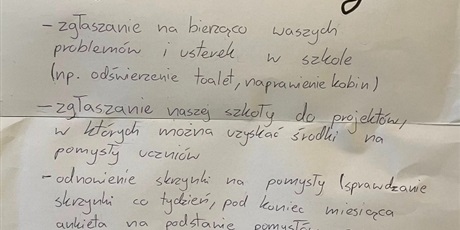 - zgłaszanie na bierząco waszych
problemów i usterek w szkole
(np. odświerzenie toalet, naprawienie kabin)
- zgłaszanie naszej szkoły do projektów,
w których można uzyskać środki na
pomysły uczniów
- odnowienie skrzynki na pomysły (sprawdzanie
skrzynki co tydzień, pod koniec miesiąca
ankieta na podstawie pomysłów